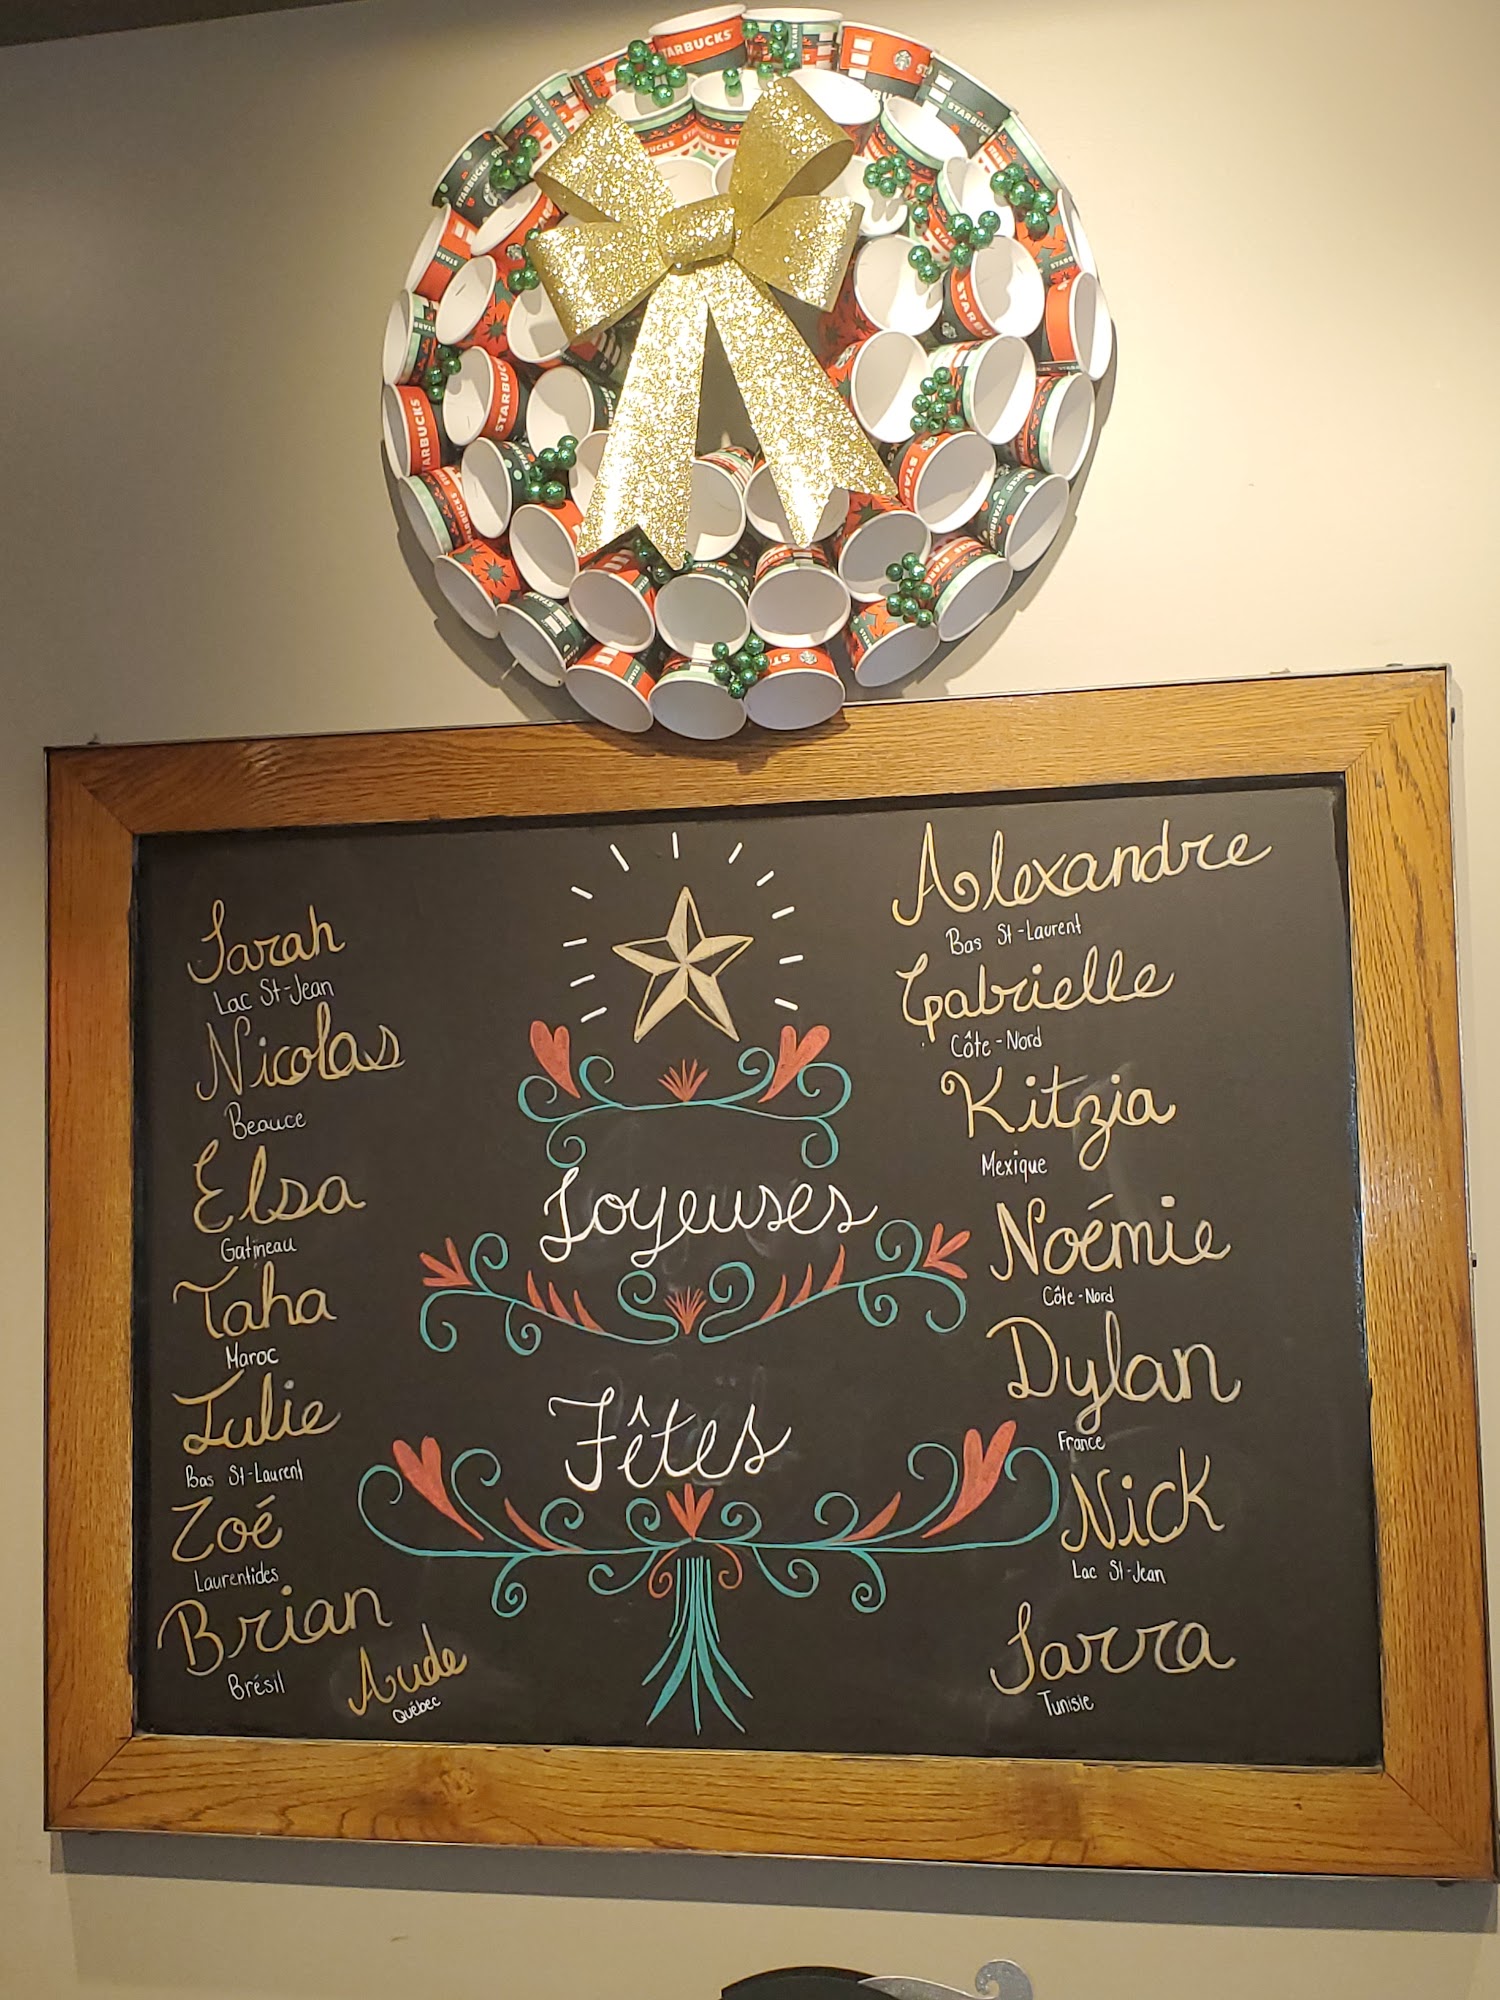 STARBUCKS
Sarah
Lac St-Jean
Nicolas
Beauce
Elsa
Gatineau
Taha
Maroc
Julie
Bas St-Laurent
Zoé
Laurentides
Brian
Brésil
Aude
Québec
Joyeuses
Fêtes
Alexandre
Bas St-Laurent
Gabrielle
Côte-Nord
Kitzia
Mexique
Noémie
Côte-Nord
Dylan
France
Nick
Lac St-Jean
Sarra
Tunisie